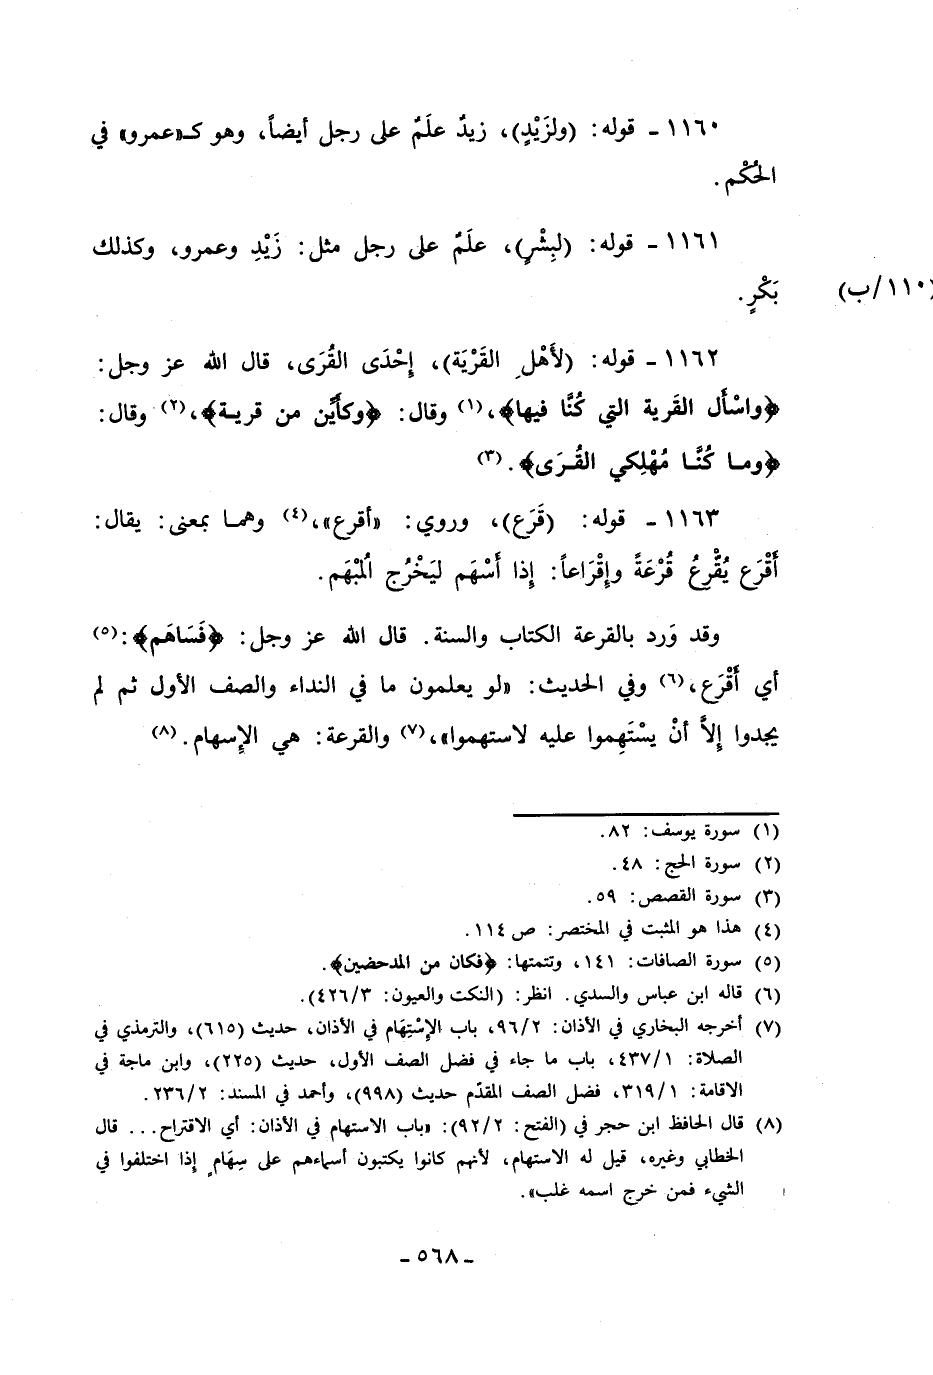 ١١٦٠ ـ قوله: (ولزَيْدٍ)، زيدٌ علَمٌ على رجل أيضاً، وهو كـ«عمرو» في
الحُكْم.
١١٦١ ـ قوله: (لبِشْرٍ)، علَمٌ على رجل مثل: زَيْدِ وعمرو، وكذلك
بَكْرٍ.
(١١٠/ب)
١١٦٢ ـ قوله: (لأَهْلِ القَرْيَة)، إحْدَى القُرَى، قال الله عز وجل:
﴿واسْأَل القَرية التي كُنَّا فيها﴾،(١) وقال: ﴿وكأيِّن من قرية﴾،(٢) وقال:
﴿وما كُنَّا مُهْلِكي القُرَى﴾.(٣)
١١٦٣ ـ قوله: (قَرَع)، وروي: «أقرع»،(٤) وهما بمعنى: يقال:
أَقْرَع يُقْرِعُ قُرْعَةً وإقْرَاعاً: إذا أسْهَم ليَخْرُج المُبْهَم.
وقد وَرد بالقرعة الكتاب والسنة. قال الله عز وجل: ﴿فَسَاهَم﴾:(٥)
أي أَقْرَع،(٦) وفي الحديث: «لو يعلمون ما في النداء والصف الأول ثم لم
يجدوا إلاَّ أنْ يسْتَهِموا عليه لاستهموا»،(٧) والقرعة: هي الإسهام.(٨)
(١) سورة يوسف: ٨٢.
(٢) سورة الحج: ٤٨.
(٣) سورة القصص: ٥٩.
(٤) هذا هو المثبت في المختصر: ص ١١٤.
(٥) سورة الصافات: ١٤١، وتتمتها: ﴿فكان من المدحضين﴾.
(٦) قاله ابن عباس والسدي. انظر: (النكت والعيون: ٤٢٦/٣).
(٧) أخرجه البخاري في الأذان: ٩٦/٢، باب الإسْتِهَام في الأذان، حديث (٦١٥)، والترمذي في
الصلاة: ٤٣٧/١، باب ما جاء في فضل الصف الأول، حديث (٢٢٥)، وابن ماجة في
الاقامة: ٣١٩/١، فضل الصف المقدّم حديث (٩٩٨)، وأحمد في المسند: ٢٣٦/٢.
(٨) قال الحافظ ابن حجر في (الفتح: ٩٢/٢): «باب الاستهام في الأذان: أي الاقتراح... قال
الخطابي وغيره، قيل له الاستهام، لأنهم كانوا يكتبون أسماءهم على سِهَامٍ إذا اختلفوا في
الشيء فمن خرج اسمه غلب».
ـ ٥٦٨ ـ